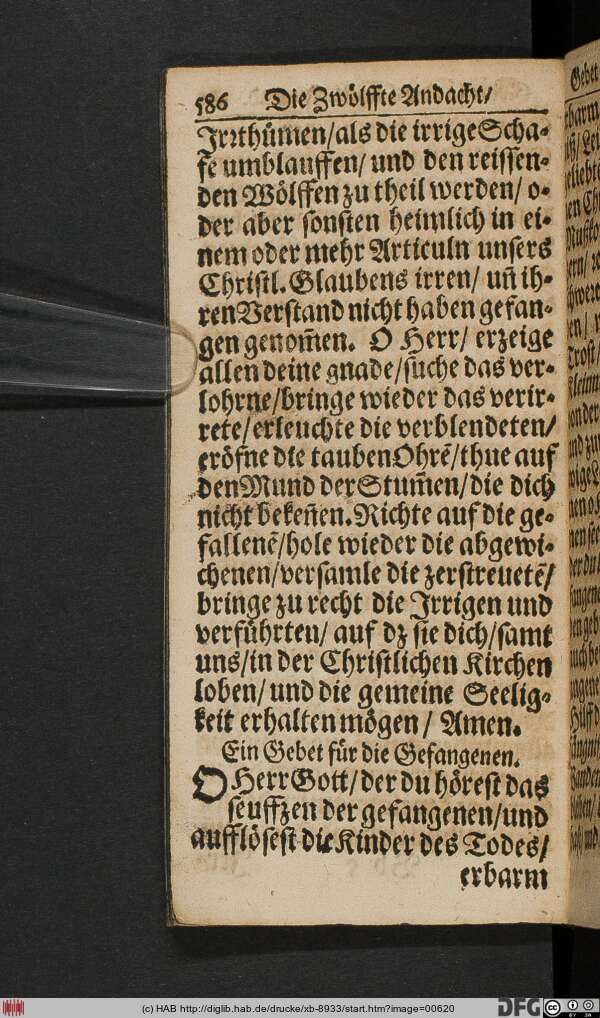 586 Die Zwölffte Andacht/
Jrꝛthümen/als die irrige Scha-
fe umblauffen/ und den reissen-
den Wölffen zu theil werden/ o-
der aber sonsten heimlich in ei-
nem oder mehr Articuln unsers
Christl. Glaubens irren/ uñ ih-
ren Verstand nicht haben gefan-
gen genom̃en. O Herr/ erzeige
allen deine gnade/suche das ver-
lohrne/bringe wieder das verir-
rete/erleuchte die verblendeten/
eröfne die tauben Ohrẽ/thue auf
den Mund der Stum̃en/die dich
nicht bekeñen. Richte auf die ge-
fallenẽ/hole wieder die abgewi-
chenen/versamle die zerstreuetẽ/
bringe zu recht die Jrrigen und
verführten/ auf dz sie dich/samt
uns/in der Christlichen Kirchen
loben/ und die gemeine Seelig-
keit erhalten mögen/ Amen.
Ein Gebet für die Gefangenen.
O Herr Gott/der du hörest das
seuffzen der gefangenen/und
aufflösest die Kinder des Todes/
erbarm
(c) HAB http://diglib.hab.de/drucke/xb-8933/start.htm?image=00620
DFG
cc BY SA